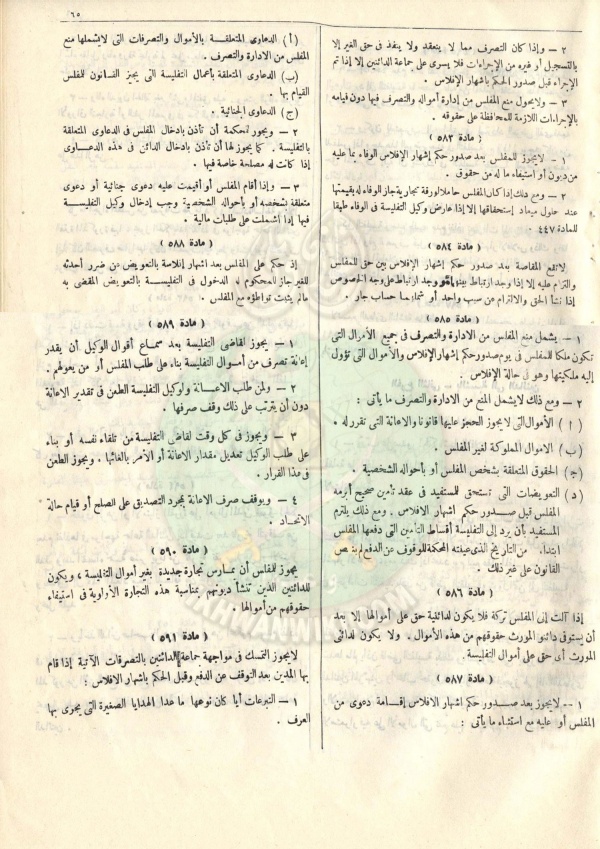 ٦٥
٢ – وإذا كان التصرف مما لا ينعقد ولا ينفذ فى حق الغير إلا
بالتسجيل أو غيره من الإجراءات فلا يسرى على جماعة الدائنين إلا إذا تم
الإجراء قبل صدور الحكم باشهار الإفلاس .
٣ – ولايحول منع المفلس من إدارة أمواله والتصرف فيها دون قيامه
بالإجراءات اللازمة للمحافظة على حقوقه .
( مادة ٥٨٣ )
١ – لايجوز للمفلس بعد صدور حكم إشهار الإفلاس الوفاء بما عليه
من ديون أو استيفاء ما له من حقوق .
٢ – ومع ذلك إذا كان المفلس حاملا لورقة تجارية جاز الوفاء له بقيمتها
عند حلول ميعاد إستحقاقها إلا إذا عارض وكيل التفليسة فى الوفاء طبقا
للمادة ٤٤٧ .
( مادة ٥٨٤ )
لاتقع المقاصة بعد صدور حكم إشهار الإفلاس بين حق للمفلس
والتزام عليه إلا إذا وجد ارتباط بينهما وقد وجد ارتباط على وجه الخصوص
إذا نشأ الحق والالتزام عن سبب واحد أو شملهما حساب جار .
( مادة ٥٨٥ )
١ – يشمل منع المفلس من الادارة والتصرف فى جميع الأموال التى
تكون ملكا للمفلس فى يوم صدور حكم إشهار الإفلاس والأموال التى تؤول
إليه ملكيتها وهو فى حالة الإفلاس .
٢ – ومع ذلك لايشمل المنع من الادارة والتصرف ما يأتى :
( ا ) الأموال التى لايجوز الحجز عليها قانونا والاعانة التى تقرر له .
(ب) الاموال المملوكة لغير المفلس .
(ج) الحقوق المتعلقة بشخص المفلس أو بأحواله الشخصية .
(د) التعويضات التى تستحق للمستفيد فى عقد تأمين صحيح أبرمه
المفلس قبل صدور حكم اشهار الافلاس . ومع ذلك يلتزم
المستفيد بأن يرد إلى التفليسة أقساط التأمين التى دفعها المفلس
ابتداء من التاريخ الذى عينته المحكمة للوقوف عن الدفع لم ينص
القانون على غير ذلك .
( مادة ٥٨٦ )
إذا آلت إلى المفلس تركة فلا يكون لدائنيه حق على أموالها إلا بعد
أن يستوفى دائنو المورث حقوقهم من هذه الأموال . ولا يكون لدائنى
المورث أى حق على أموال التفليسة .
( مادة ٥٨٧ )
١ – لايجوز بعد صدور حكم اشهار الافلاس إقامة دعوى من
المفلس أو عليه مع استثناء ما يأتى :
(أ) الدعاوى المتعلقة بالأموال والتصرفات التى لايشملها منع
المفلس من الادارة والتصرف .
(ب) الدعاوى المتعلقة بأعمال التفليسة التى يجيز القانون للمفلس
القيام بها .
(ج) الدعاوى الجنائية .
٢ – ويجوز للمحكمة أن تأذن بإدخال المفلس فى الدعاوى المتعلقة
بالتفليسة . كما يجوز لها أن تأذن بادخال الدائن فى هذه الدعاوى
إذا كانت له مصلحة خاصة فيها .
٣ – وإذا أقام المفلس أو أقيمت عليه دعوى جنائية أو دعوى
متعلقة بشخصه أو بأحواله الشخصية وجب إدخال وكيل التفليسة
فيها إذا اشتملت على طلبات مالية .
( مادة ٥٨٨ )
إذ حكم على المفلس بعد اشهار إفلاسة بالتعويض من ضرر أحدثه
للغير جاز للمحكوم له الدخول فى التفليسة بالتعويض المقضى به
مالم يثبت تواطؤه مع المفلس .
( مادة ٥٨٩ )
١ – يجوز لقاضى التفليسة بعد سماع أقوال الوكيل أن يقدر
إعانة تصرف من أموال التفليسة بناء على طلب المفلس أو من يعولهم .
٢ – ولمن طلب الاعانة ولوكيل التفليسة الطعن فى تقدير الاعانة
دون أن يترتب على ذلك وقف صرفها .
٣ – ويجوز فى كل وقت لقاض التفليسة من تلقاء نفسه أو بناء
على طلب الوكيل تعديل مقدار الاعانة أو الأمر بالغائها . ويجوز الطعن
فى هذا القرار .
٤ – ويوقف صرف الاعانة بمجرد التصديق على الصلح أو قيام حالة
الاتحاد .
( مادة ٥٩٠ )
يجوز للمفلس أن يمارس تجارة جديدة بغير أموال التفليسة ، ويكون
للدائنين الذين تنشأ ديونهم بمناسبة هذه التجارة الأولوية فى استيفاء
حقوقهم من أموالها .
( مادة ٥٩١ )
لايجوز التمسك فى مواجهة جماعة الدائنين بالتصرفات الآتية إذا قام
بها المدين بعد التوقف عن الدفع وقبل الحكم باشهار الافلاس :
١ – التبرعات أيا كان نوعها ما عدا الهدايا الصغيرة التى يجرى بها
العرف .